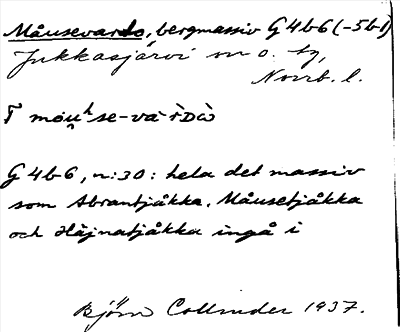 Måusevardo, bergmassiv G4b6 (-5b1)
Jukkasjärvi sn o. tg,
Norrb. l.
G4b6, n:30: hela det massiv
som Abrantjåkka, Måusetjåkka
och Håjnatjåkka ingå i
Björn Collinder 1937.